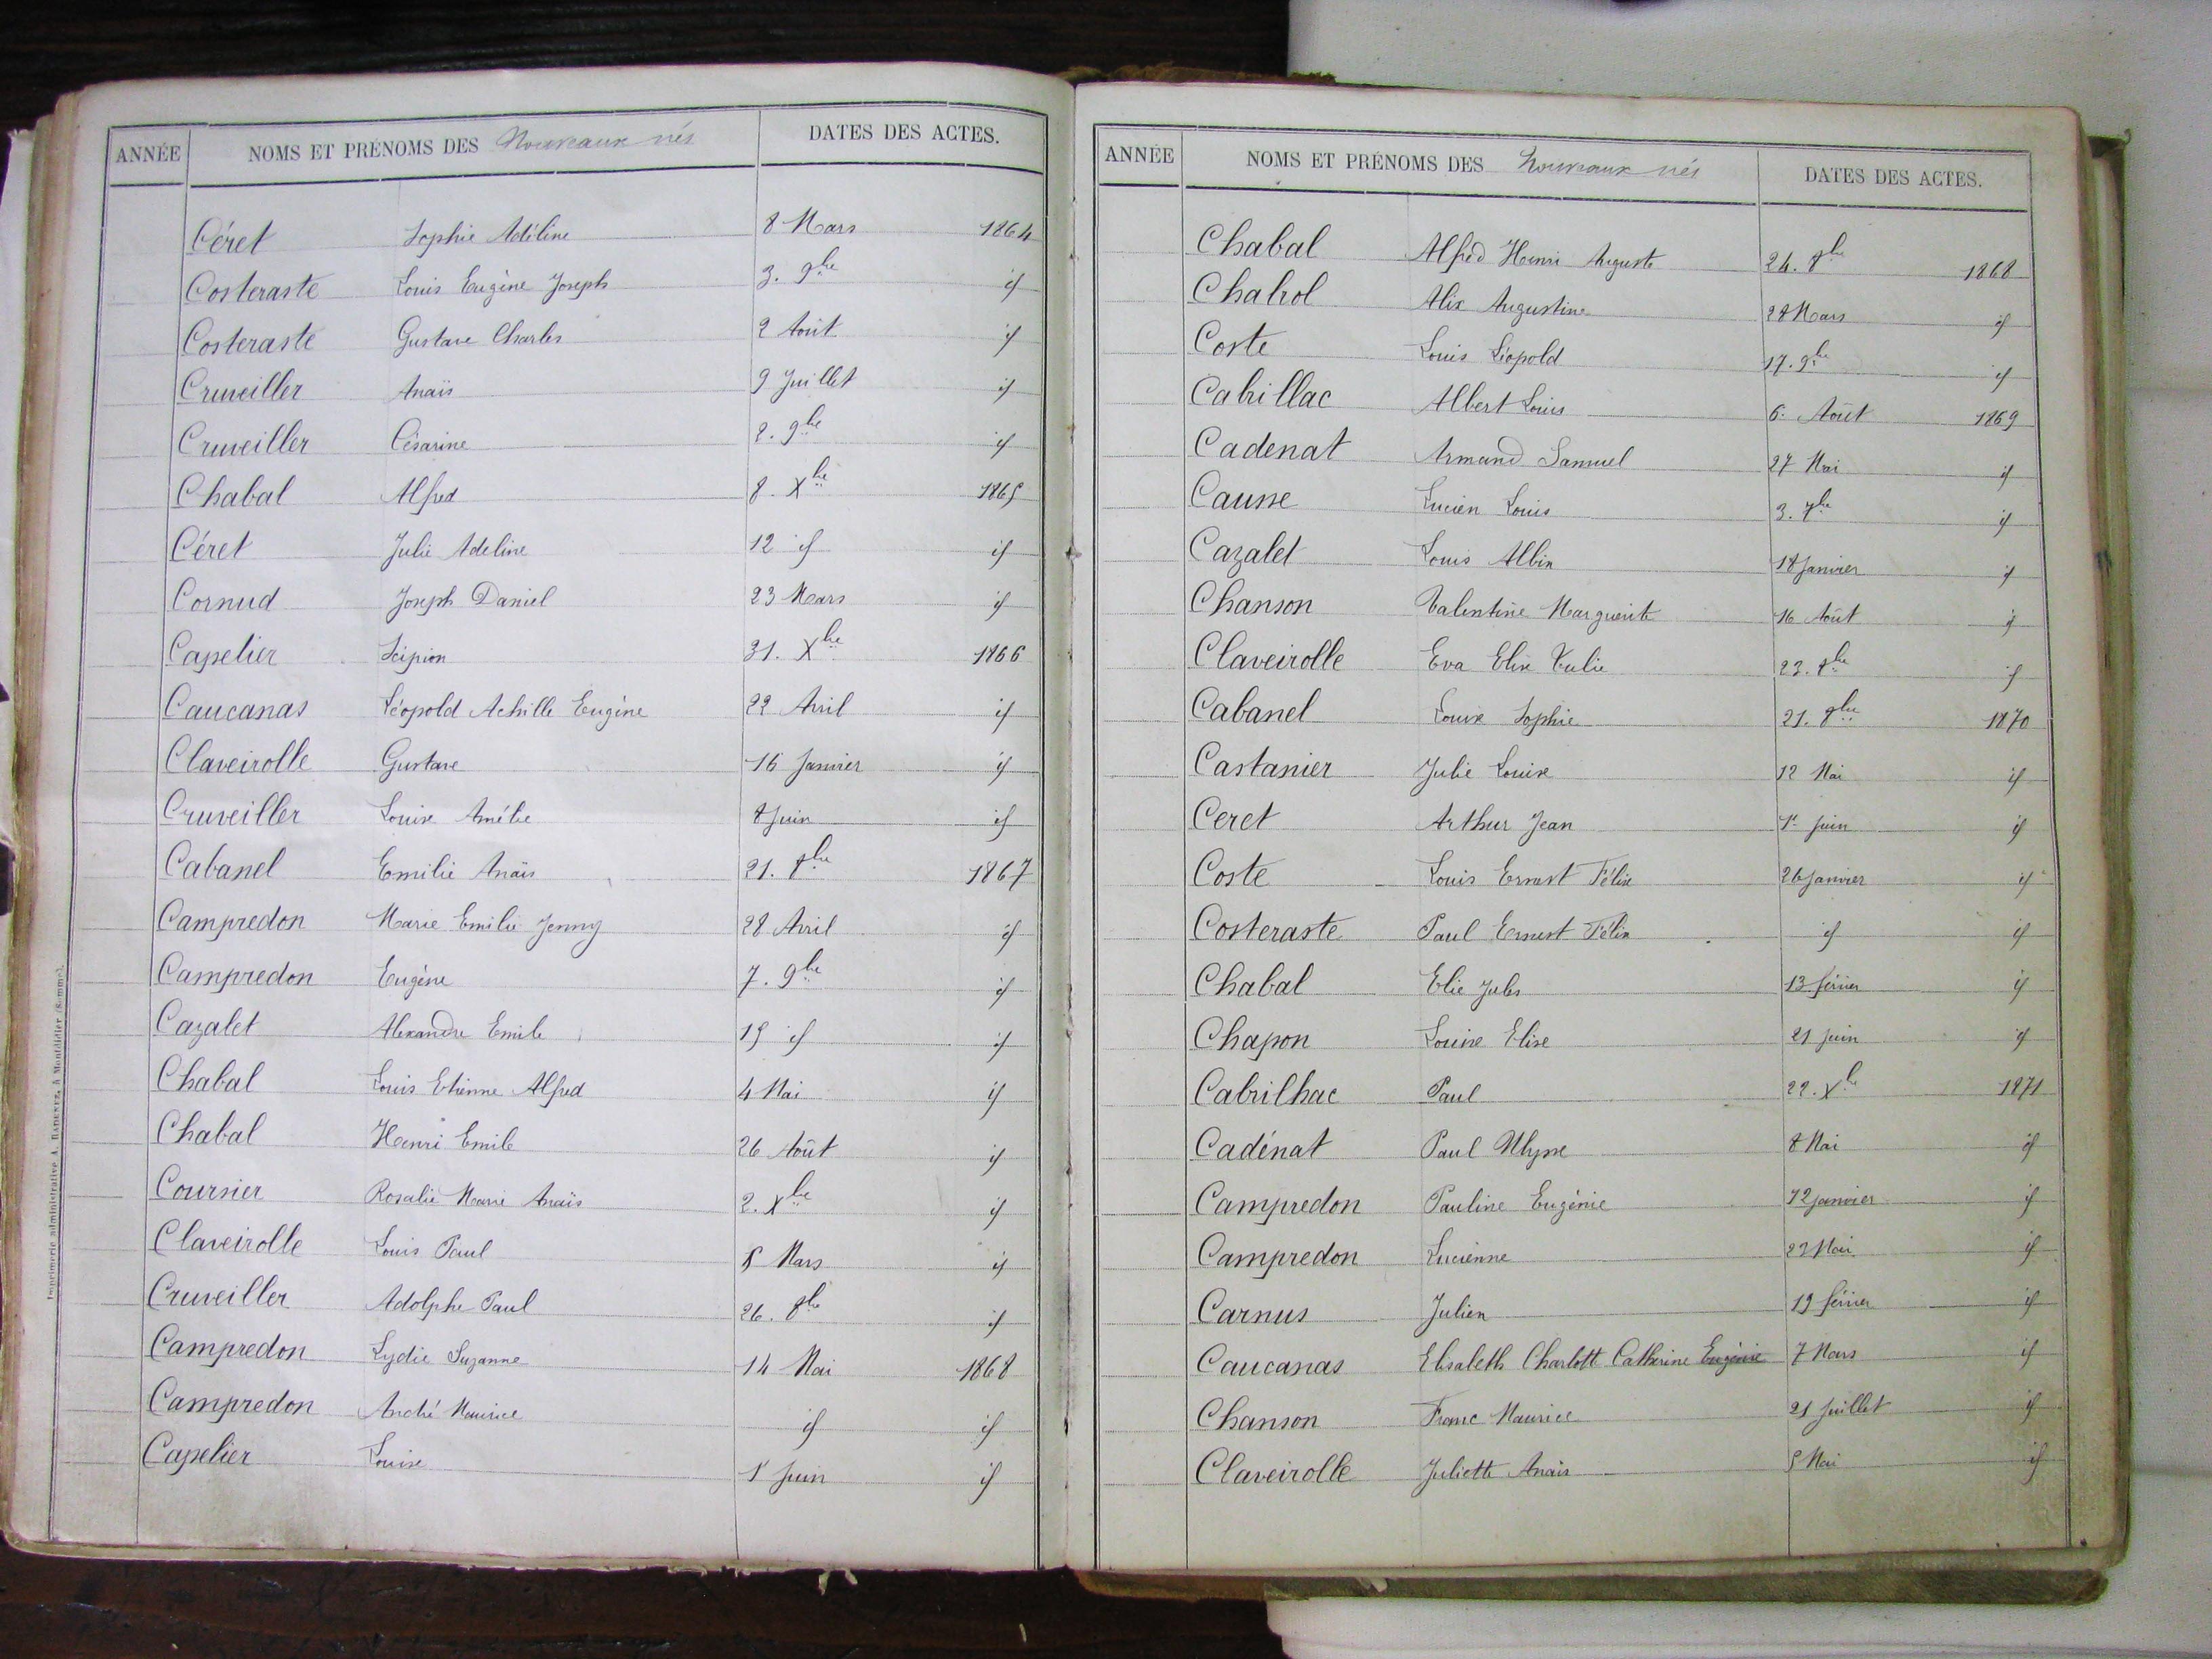 ANNÉE NOMS ET PRÉNOMS DES Nouveaux nés DATES DES ACTES.
Céret Sophie Adéline 8 Mars 1864
Costeraste Louis Eugène Joseph 3. 9bre id
Costeraste Gustave Charles 2 Août id
Cruveiller Anaïs 9 Juillet id
Cruveiller Césarine 2. 9bre id
Chabal Alfred 8. Xbre 1865
Céret Julie Adeline 12 id id
Cornud Joseph Daniel 23 Mars id
Capelier Scipion 31. Xbre 1866
Caucanas Léopold Achille Eugène 22 Avril id
Claveirolle Gustave 16 Janvier id
Cruveiller Louise Amélie 8 Juin id
Cabanel Emilie Anaïs 21. 8bre 1867
Campredon Marie Emilie Jenny 28 Avril id
Campredon Eugène 7. 9bre id
Cazalet Alexandre Emile 15 id id
Chabal Louis Etienne Alfred 4 Mai id
Chabal Henri Emile 26 Août id
Coursier Rosalie Marie Anaïs 2. Xbre id
Claveirolle Louis Paul Mars id
Cruveiller Adolphe Paul 26. 8bre id
Campredon Lydie Suzanne 14 Mai 1868
Campredon André Maurice id id
Capelier Louise 1r Juin id
Imprimerie administrative A. Radenez, à Montdidier (Somme).
ANNÉE NOMS ET PRÉNOMS DES Nouveaux nés DATES DES ACTES.
Chabal Alfred Henri Auguste 24. 8bre 1868
Chabrol Alix Augustine 28 Mars id
Coste Louis Léopold 17. 9bre id
Cabrillac Albert Louis 6. Août 1869
Cadenat Armand Samuel 27 Mai id
Causse Lucien Louis 3. 7bre id
Cazalet Louis Albin 18 Janvier id
Chanson Valentine Marguerite 16 Août id
Claveirolle Eva Elise Tulie 23. 8bre id
Cabanel Louise Sophie 21. 9bre 1870
Castanier Julie Louise 12 Mai id
Ceret Arthur Jean 1r juin id
Coste Louis Ernest Félix 26 janvier id
Costeraste Paul Ernest Félix id id
Chabal Elie Jules 13 février id
Chapon Louise Elise 21 juin id
Cabrilhac Paul 22. Xbre 1871
Cadénat Paul Ulysse 8 Mai id
Campredon Pauline Eugénie 12 janvier id
Campredon Lucienne 23 Mai id
Carnus Julien 19 février id
Caucanas Elisabeth Charlotte Catherine Eugénie 7 Mars id
Chanson Franc Maurice 21 Juillet id
Claveirolle Juliette Anaïs 5 Mai id